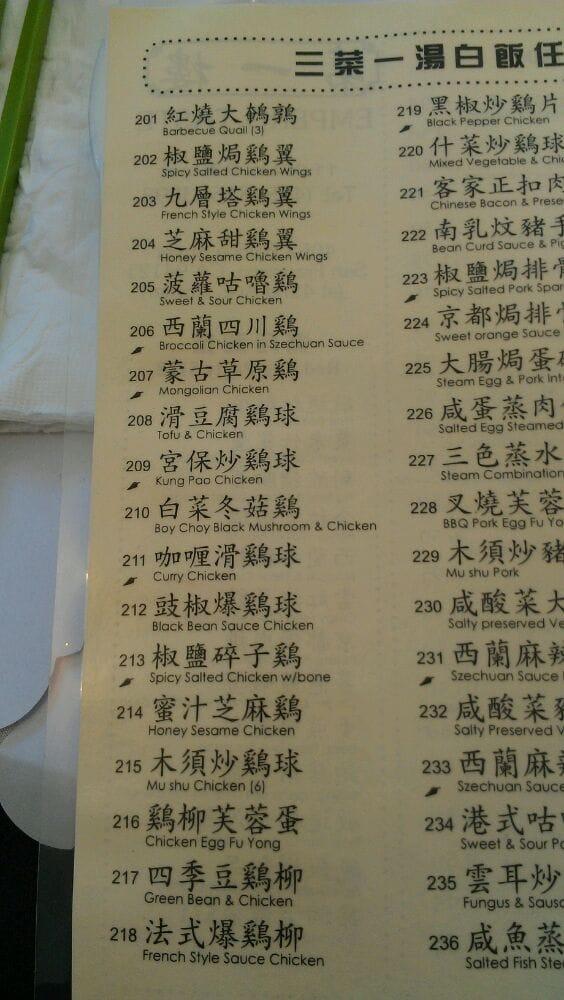 三菜一湯白飯任
201 紅燒大鵪鶉
Barbecue Quail (3)
202 椒鹽焗鷄翼
Spicy Salted Chicken Wings
203 九層塔鷄翼
French Style Chicken Wings
204 芝麻甜鷄翼
Honey Sesame Chicken Wings
205 菠蘿咕嚕鷄
Sweet & Sour Chicken
206 西蘭四川鷄
Broccoli Chicken in Szechuan Sauce
207 蒙古草原鷄
Mongolian Chicken
208 滑豆腐鷄球
Tofu & Chicken
209 宮保炒鷄球
Kung Pao Chicken
210 白菜冬菇鷄
Boy Choy Black Mushroom & Chicken
211 咖喱滑鷄球
Curry Chicken
212 豉椒爆鷄球
Black Bean Sauce Chicken
213 椒鹽碎子鷄
Spicy Salted Chicken w/bone
214 蜜汁芝麻鷄
Honey Sesame Chicken
215 木須炒鷄球
Mu shu Chicken (6)
216 鷄柳芙蓉蛋
Chicken Egg Fu Yong
217 四季豆鷄柳
Green Bean & Chicken
218 法式爆鷄柳
French Style Sauce Chicken
219 黑椒炒鷄片
Black Pepper Chicken
220 什菜炒鷄球
Mixed Vegetable & Chi
221 客家正扣肉
Chinese Bacon & Prese
222 南乳炆豬手
Bean Curd Sauce & Pi
223 椒鹽焗排骨
Spicy Salted Pork Spar
224 京都焗排骨
Sweet orange Sauce
225 大腸焗蛋
Steam Egg & Pork Int
226 咸蛋蒸肉
Salted Egg Steamed
227 三色蒸水
Steam Combination
228 叉燒芙蓉
BBQ Pork Egg Fu Yo
229 木須炒豬
Mu shu Pork
230 咸酸菜大
Salty preserved Ve
231 西蘭麻辣
Szechuan Sauce
232 咸酸菜
Salty Preserved V
233 西蘭麻辣
Szechuan Sauce
234 港式咕
Sweet & Sour Po
235 雲耳炒
Fungus & Saus
236 咸魚蒸
Salted Fish Ste